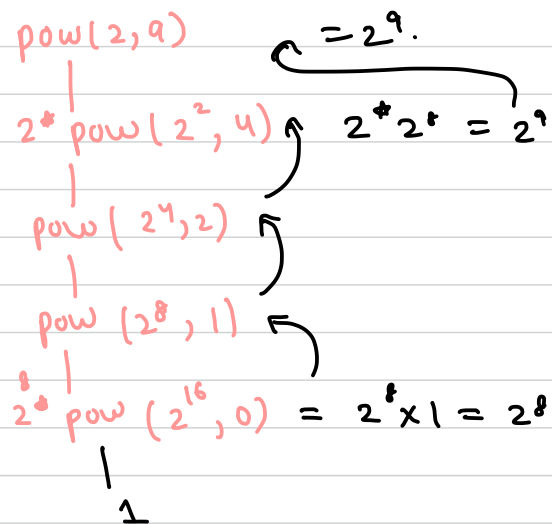 pow(2,9) = 2⁹.
2* pow(2²,4) 2*2⁸ = 2⁹
pow(2⁴,2)
pow(2⁸,1)
2⁸* pow(2¹⁶,0) = 2⁸×1 = 2⁸
1